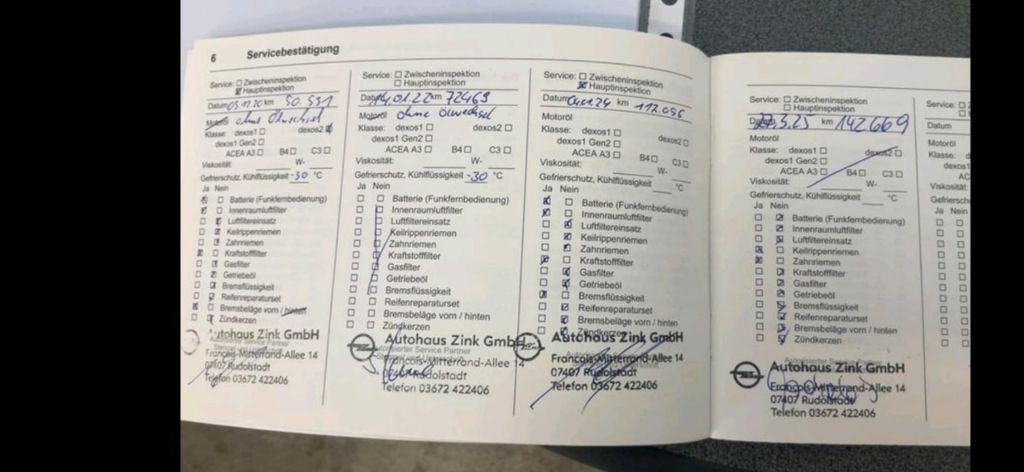 6 Servicebestätigung
Service: ☐ Zwischeninspektion
☒ Hauptinspektion
Datum 03.12.20 km 50.551
Motoröl ohne
Klasse: dexos1 ☐ dexos2 ☒
dexos1 Gen2 ☐
ACEA A3 ☐ B4 ☐ C3 ☐
Viskosität: W-
Gefrierschutz, Kühlflüssigkeit -30 °C
Ja Nein
Batterie (Funkfernbedienung)
Innenraumluftfilter
Luftfiltereinsatz
Keilrippenriemen
Zahnriemen
Kraftstofffilter
Gasfilter
Getriebeöl
Bremsflüssigkeit
Reifenreparaturset
Bremsbeläge vorn / hinten
Zündkerzen
Autohaus Zink GmbH
François-Mitterrand-Allee 14
07407 Rudolstadt
Telefon 03672 422406
Service: ☐ Zwischeninspektion
☒ Hauptinspektion
Datum 14.01.22 km 72469
Motoröl ohne Ölwechsel
Klasse: dexos1 ☐ dexos2 ☐
dexos1 Gen2 ☐
ACEA A3 ☐ B4 ☐ C3 ☐
Viskosität: W-
Gefrierschutz, Kühlflüssigkeit -30 °C
Ja Nein
Batterie (Funkfernbedienung)
Innenraumluftfilter
Luftfiltereinsatz
Keilrippenriemen
Zahnriemen
Kraftstofffilter
Gasfilter
Getriebeöl
Bremsflüssigkeit
Reifenreparaturset
Bremsbeläge vorn / hinten
Zündkerzen
Autohaus Zink GmbH
Autorisierter Service Partner
François-Mitterrand-Allee 14
07407 Rudolstadt
Telefon 03672 422406
Service: ☐ Zwischeninspektion
☒ Hauptinspektion
Datum 04.01.24 km 112.086
Motoröl
Klasse: dexos1 ☐ dexos2 ☐
dexos1 Gen2 ☐
ACEA A3 ☐ B4 ☐ C3 ☐
Viskosität: W-
Gefrierschutz, Kühlflüssigkeit °C
Ja Nein
Batterie (Funkfernbedienung)
Innenraumluftfilter
Luftfiltereinsatz
Keilrippenriemen
Zahnriemen
Kraftstofffilter
Gasfilter
Getriebeöl
Bremsflüssigkeit
Reifenreparaturset
Bremsbeläge vorn / hinten
Zündkerzen
Autohaus Zink GmbH
François-Mitterrand-Allee 14
07407 Rudolstadt
Telefon 03672 422406
Service: ☐ Zwischeninspektion
☐ Hauptinspektion
3.25 km 142669
Motoröl
Klasse: dexos1 ☐ dexos2 ☐
dexos1 Gen2 ☐
ACEA A3 ☐ B4 ☐ C3 ☐
Viskosität: W-
Gefrierschutz, Kühlflüssigkeit °C
Ja Nein
Batterie (Funkfernbedienung)
Innenraumluftfilter
Luftfiltereinsatz
Keilrippenriemen
Zahnriemen
Kraftstofffilter
Gasfilter
Getriebeöl
Bremsflüssigkeit
Reifenreparaturset
Bremsbeläge vorn / hinten
Zündkerzen
Autorisierter Service Partner
Autohaus Zink GmbH
François-Mitterrand-Allee 14
07407 Rudolstadt
Telefon 03672 422406
Service: ☐ Z
☐ H
Datum
Motoröl
Klasse: d
dexos1
AC
Viskosität:
Gefriersch
Ja Nein